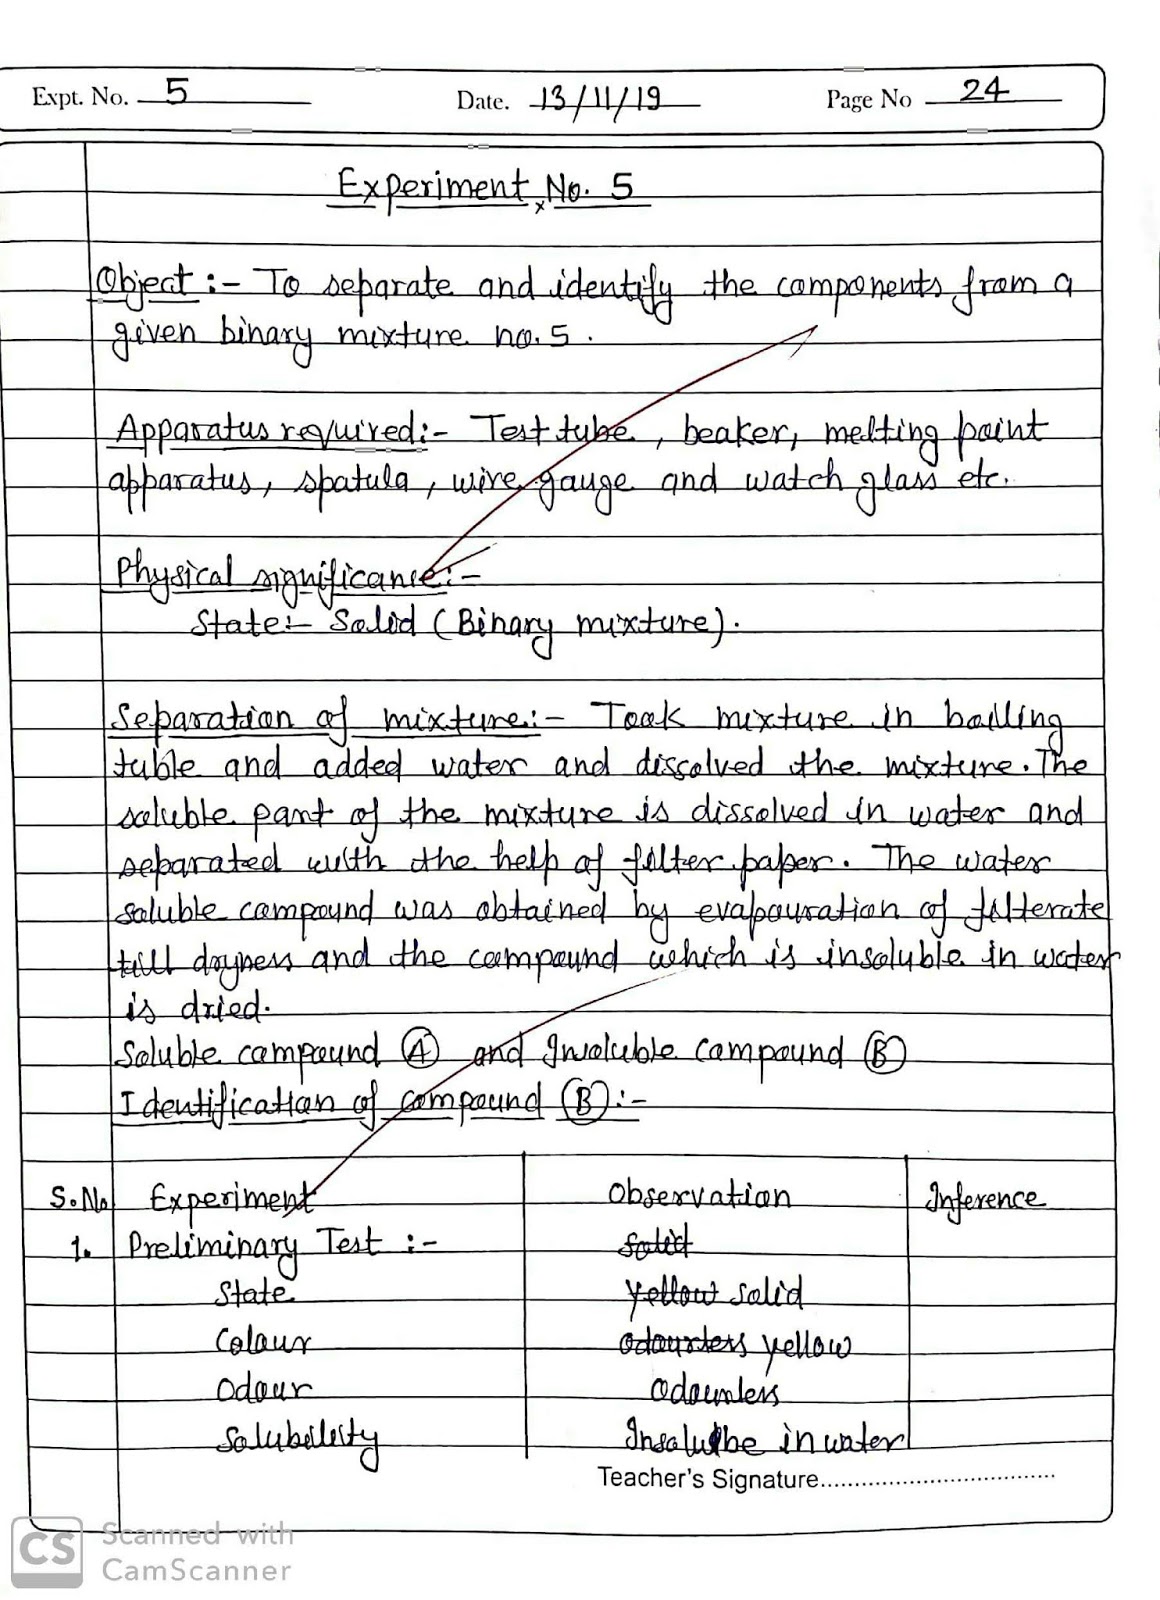 Expt. No. 5 Date. 13/11/19 Page No 24
Experiment No. 5
Object :- To separate and identify the components from a
given binary mixture no. 5.
Apparatus required:- Test tube, beaker, melting point
apparatus, spatula, wire gauge and watch glass etc.
Physical significance:-
State:- Solid (Binary mixture).
Separation of mixture:- Took mixture in boiling
tuble and added water and dissolved the mixture. The
soluble part of the mixture is dissolved in water and
separated with the help of filter paper. The water
soluble compound was obtained by evapouration of filterate
till dryness and the compound which is insoluble in water
is dried.
Soluble compound A and Insoluble compound B
Identification of compound B :-
S.No. Experiment Observation Inference
1. Preliminary Test :- solid
State yellow solid
Colour odourless yellow
Odour Odourless
Solubility Insolulbe in water
Teacher's Signature
CS Scanned with
CamScanner